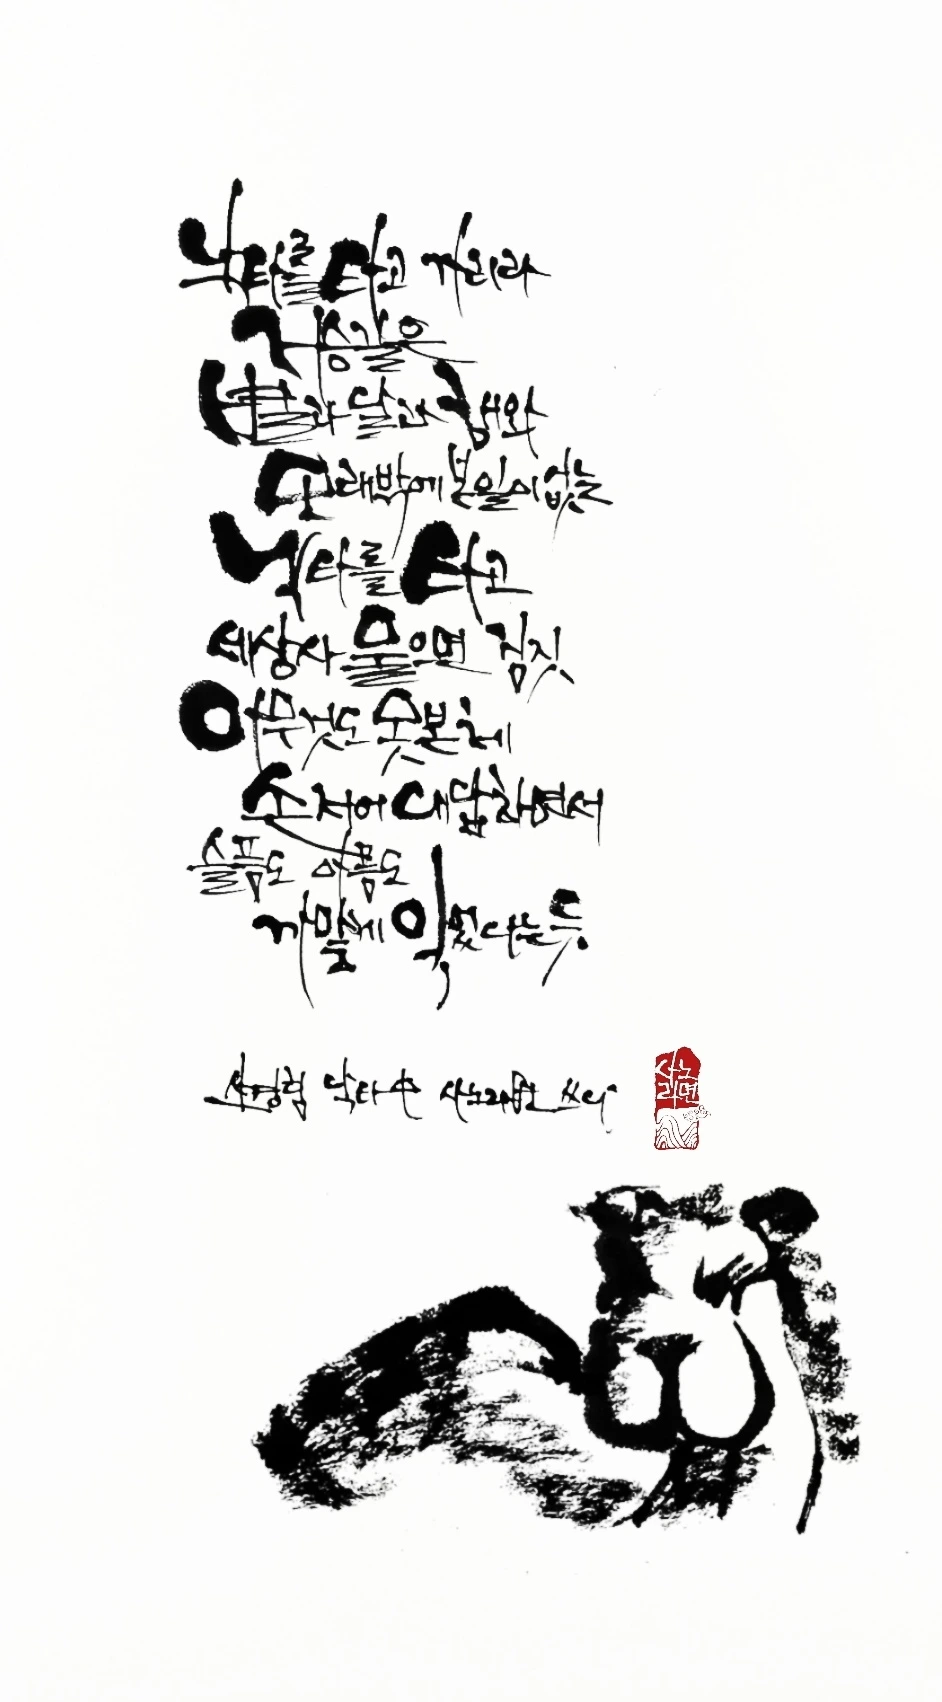 낙타를 타고 가리라
저승길은
별과 달과 해와
모래밖에 본 일이 없는
낙타를 타고
세상사 물으면 짐짓
아무것도 못 본 체
손 저어 대답하면서
슬픔도 아픔도
까맣게 잊었다는 듯
신경림 낙타 中 사노라면 쓰다
사노라면